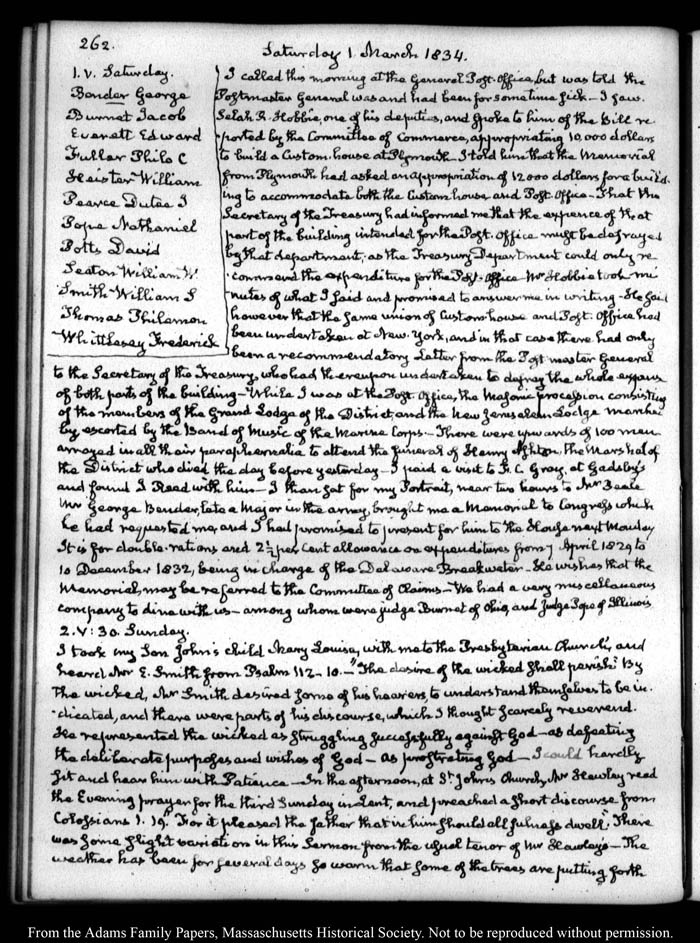 262.
Saturday 1 March 1834.
1. V. Saturday.
Bender George
Burnet Jacob
Everett Edward
Fuller Philo C
Heister William
Pearce Dutee J
Pope Nathaniel
Potts David
Seaton William W.
Smith William S
Thomas Philemon
Whittlesey Frederick
I called this morning at the General Post-Office, but was told the
Postmaster General was and had been for some time sick — I saw
Selah R. Hobbie, one of his deputies, and spoke to him of the Bill re-
ported by the Committee of Commerce, appropriating 10,000 dollars
to build a Custom-house at Plymouth — I told him that the Memorial
from Plymouth had asked an appropriation of 12000 dollars for a build-
ing to accommodate both the Custom house and Post-Office — That the
Secretary of the Treasury had informed me that the expence of that
part of the building intended for the Post-Office must be defrayed
by that department; as the Treasury Department could only re-
commend the expenditure for the Post-Office Mr Hobbie took mi-
nutes of what I said and promised to answer me in writing — He said
however that the same union of Custom house and Post-Office had
been undertaken at New-York, and in that case there had only
been a recommendatory Letter from the Post master General
to the Secretary of the Treasury, who had thereupon undertaken to defray the whole expense
of both parts of the building — While I was at the Post-Office, the Masonic procession consisting
of the members of the Grand Lodge of the District, and the New Jerusalem Lodge marched
by escorted by the Band of Music of the Marine Corps — There were upwards of 100 men
arrayed in all their paraphernalia to attend the funeral of Henry Ashton, the Marshal of
the District who died the day before yesterday — I paid a visit to F. C. Gray, at Gadsby's
and found I Read with him — I then sat for my Portrait, near two hours to Mr Beale
Mr George Bender, late a Major in the army, brought me a Memorial to Congress which
he had requested me, and I had promised to present for him to the House next Monday
It is for double rations and 2½ per Cent allowance on expenditures from 7 April 1829 to
10 December 1832, being in charge of the Delaware Breakwater — He wishes that the
Memorial, may be referred to the Committee of Claims — We had a very miscellaneous
company to dine with us — among whom were judge Burnet of Ohio, and Judge Pope of Illinois
2. V: 30. Sunday.
I took my Son John's child Mary Louisa, with me to the Presbyterian Church, and
heard Mr E. Smith from Psalm 112-10 — "The desire of the wicked shall perish." By
the wicked, Mr Smith desired some of his hearers to understand themselves to be in-
dicated, and there were parts of his discourse, which I thought scarcely reverend.
He represented the wicked as struggling successfully against God — as defeating
the deliberate purposes and wishes of God — as prostrating God — I could hardly
sit and hear him with Patience — In the afternoon, at St. John's Church, Mr Hawley read
the Evening prayer for the third Sunday in Lent, and preached a short discourse from
Colossians 1. 19. "For it pleased the father that in him should all fulness dwell." There
was some slight variation in this Sermon from the usual tenor of Mr Hawley's — The
weather has been for several days so warm that some of the trees are putting forth
From the Adams Family Papers, Massachusetts Historical Society. Not to be reproduced without permission.